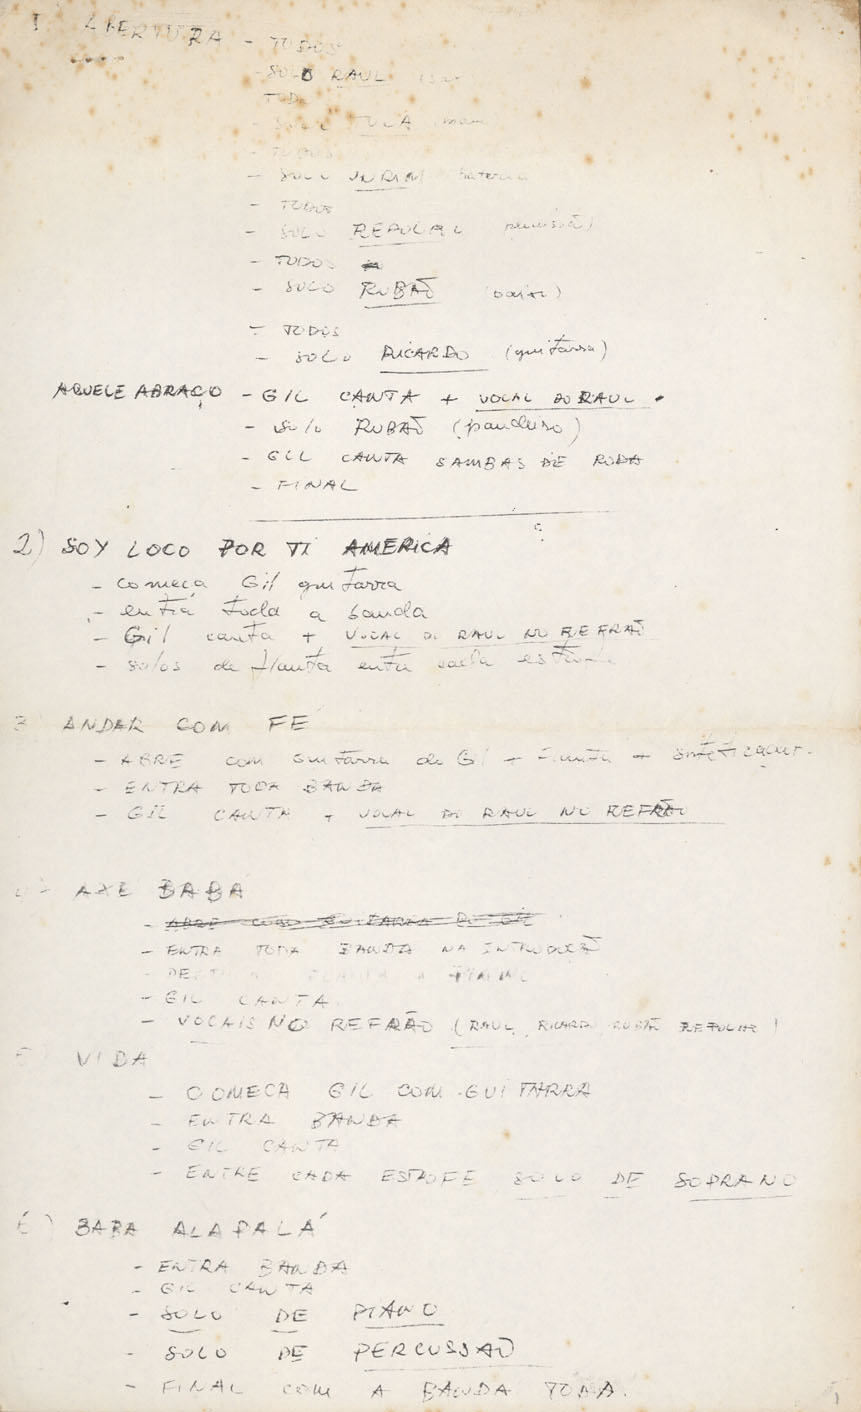 I ABERTURA - TODOS
- SOLO RAUL
TODOS
- SOLO TUCA
- TODOS
- SOLO bateria
- TODOS
- SOLO REPOLHO
- TODOS
- SOLO RUBÃO (baixo)
- TODOS
- SOLO RICARDO (guitarra)
AQUELE ABRAÇO - GIL CANTA + VOCAL DO RAUL
- solo RUBÃO (pandeiro)
- GIL CANTA SAMBAS DE RODA
- FINAL
2) SOY LOCO POR TI AMERICA
- começa Gil guitarra
- entra toda a banda
- Gil canta + VOCAL DI RAUL NO REFRÃO
- solos de flauta entre cada
3 ANDAR COM FE
- ABRE com Guitarra de Gil + Flauta +
- ENTRA TODA BANDA
- GIL CANTA + VOCAL DI RAUL NO REFRÃO
AXE BABA
- ABRE COM GUITARRA DE GIL
- ENTRA TODA BANDA NA INTRODUÇÃO
- GIL CANTA
- VOCAIS NO REFRÃO (RAUL, RICARDO, RUBÃ REPOLHO)
5) VIDA
- COMEÇA GIL COM GUITARRA
- ENTRA BANDA
- GIL CANTA
- ENTRE CADA ESTROFE SOLO DE SOPRANO
6) BABA ALAPALÁ
- ENTRA BANDA
- GIL CANTA
- SOLO DE PIANO
- SOLO DE PERCUSSÃO
- FINAL COM A BANDA TODA.